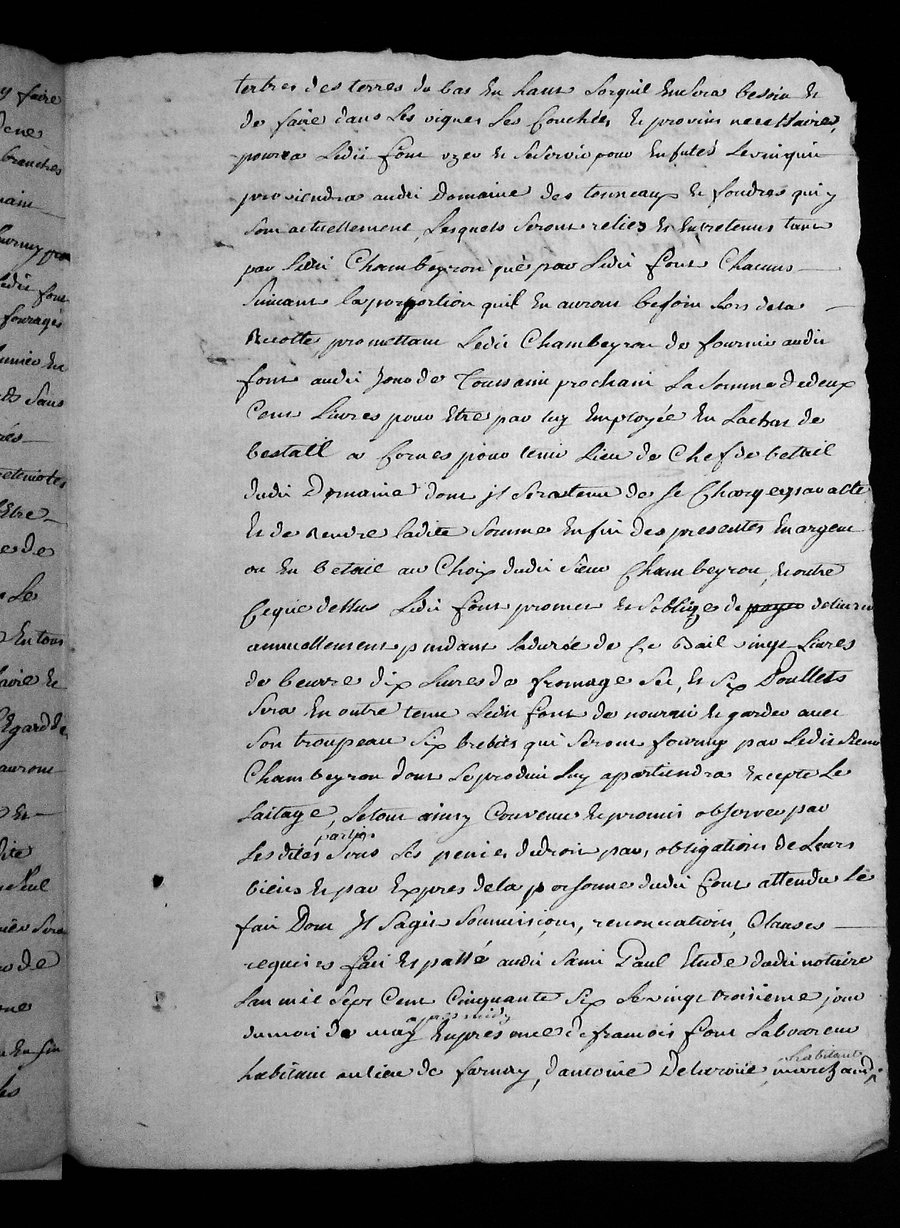 y faire
dene
branches
main
fourny pra
Ledit font
fourages
Sans
Etre
de
Le
En tous
Egard de
auront
Et
dite
Seul
Sera
de
En fin
tertres des terres du bas En haut Lorquil En Sera besoin Et
de faire dans Les vignes Les Couchées Et provins necessaires,
pourra Ledit font uzer Et Seservir pour Enfuter Levin qui
proviendra audit Domaine des tonneaux Et foudres qui y
Sont actuellement, Lesquels Seront reliez Et Entretenus tant
par Ledit Chambeyron que par Ledit font Chacuns
Suivant la proportion quil En auront besoin Lors dela
Recolte, promettant Ledit Chambeyron de fournir audit
font audit Jour de Toussaint prochain La Somme dedeux
Cent Livres pour Etre par luy Employée En Lachat de
bestail a Cornes pour tenir Lieu de Chef de betail
dudit Domaine dont jl Sera tenu de Se Charger par acte
Et de Rendre ladite Somme En fin des presentes En argent
ou En betail au Choix dudit Sieur Chambeyron, En outre
Ceque dessus Ledit font promet Et Soblige de payer delivrer
annuellement pendant La durée de Ce Bail vingt Livres
de beurre dix Livres de fromage Sec, Et Six Poullets
Sera En outre tenu Ledit font de nourrir Et garder avec
Son troupeau Six brebis qui Seront fourny par Ledit Sieur
Chambeyron dont Le produit Luy apartiendra Excepte Le
Laitage, Letout ainsy Convenu Et promis observer par
Lesdites parties Sous Les peines dedroit par, obligations de Leurs
biens Et par Expres dela personne dudit font attendu Le
fait Dont Jl Sagit Soumissions, renonciations, Clauses
requises fait Et passé audit Saint Paul Etude dudit notaire
Lan mil Sept Cent Cinquante Six Le vingt troisieme jour
du moi de may apres midy En presence de francois font Laboureur
habitant au lieu de farnay, dantoine Delaroüe, marchand habitant